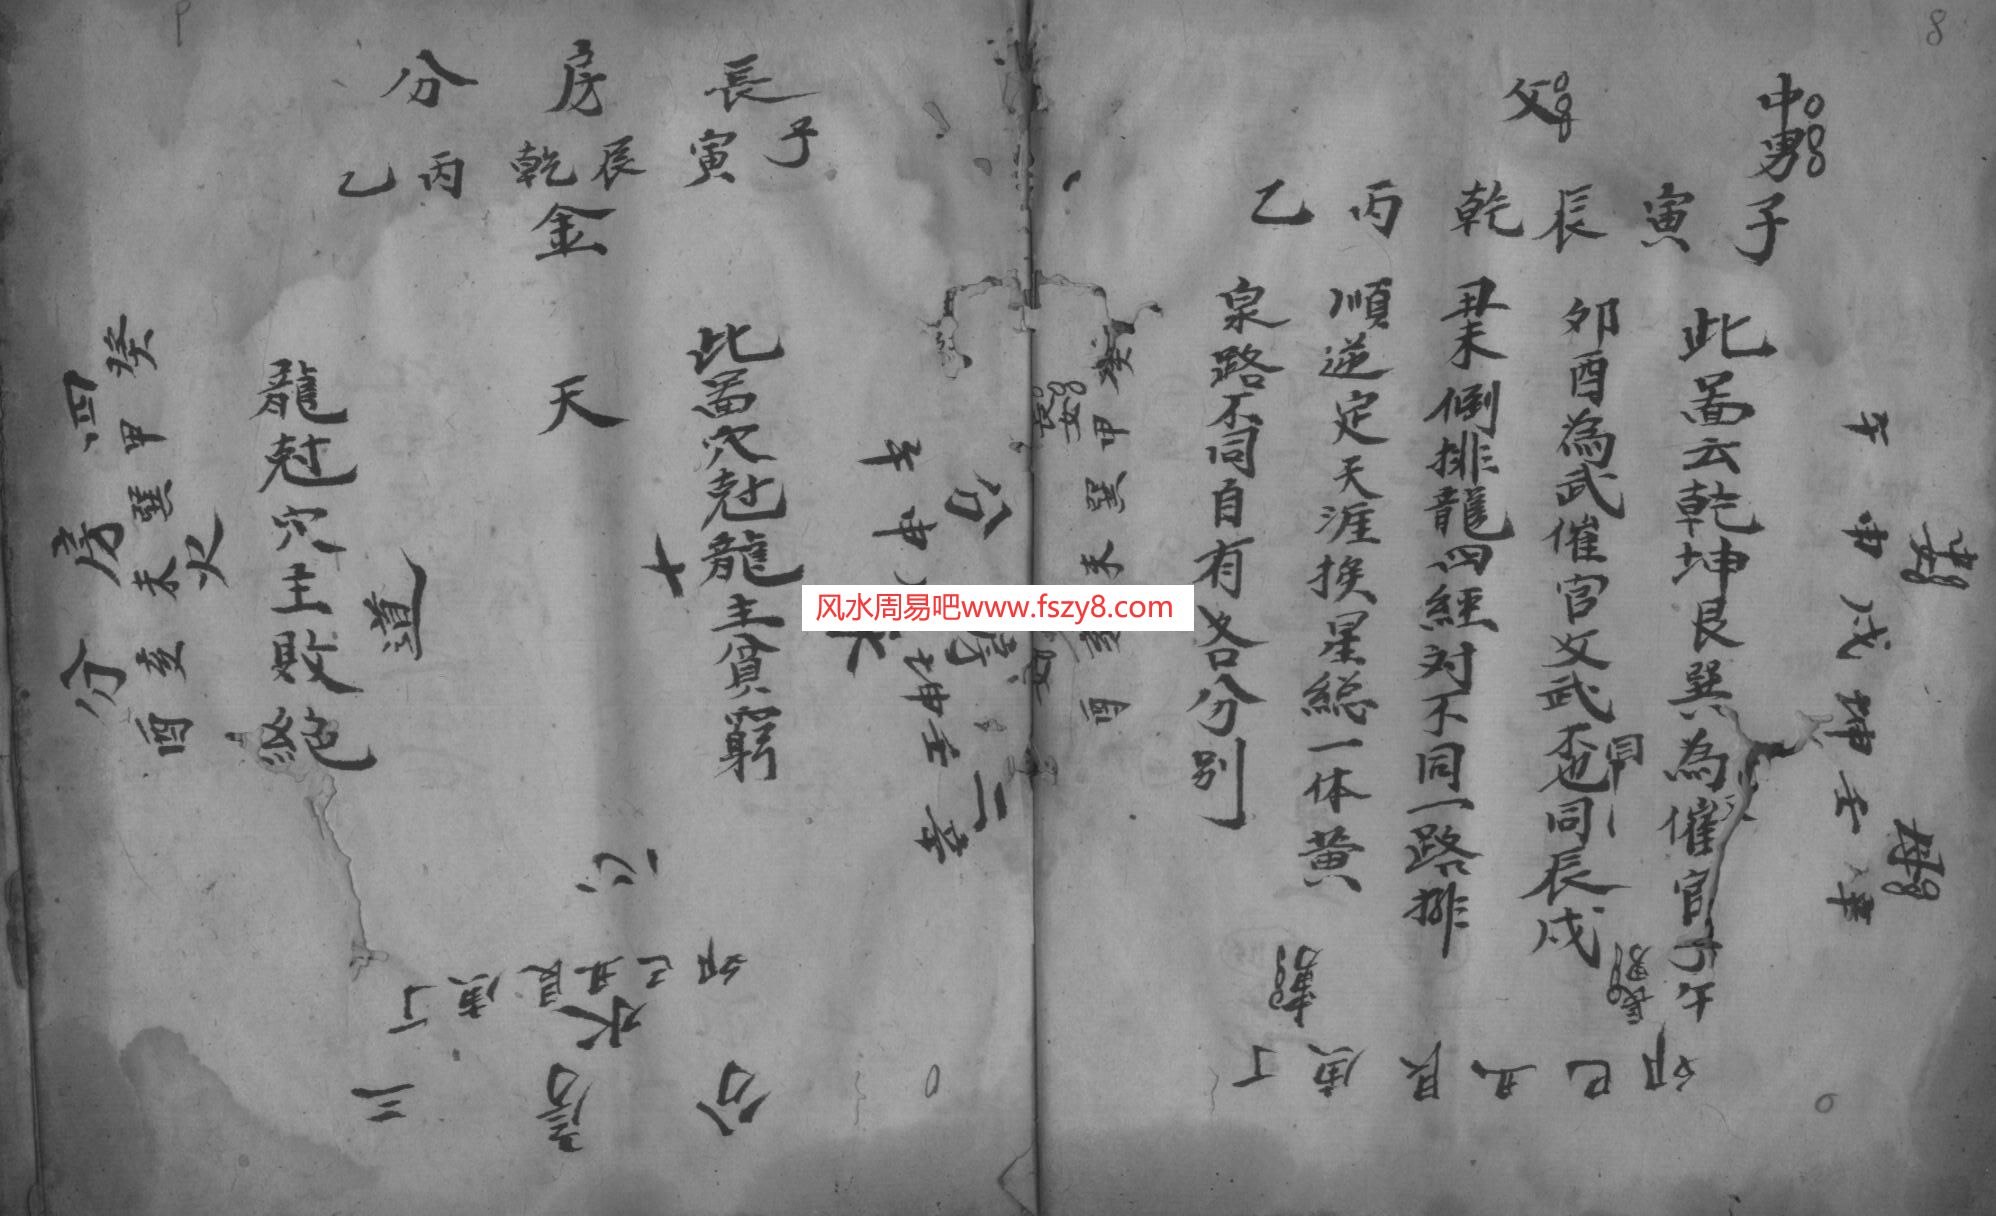 8
中男
父
子 寅 辰 乾 丙 乙
此啚云乾坤艮巽為催官子午
卯酉為武催官文武盃同辰戌
同
丑未倒排龍四經对不同一路排
順逆定天涯换星総一体黄
泉路不同自有各分别
午 申 戌 坤 壬 辛
卯 巳 丑 艮 庚 丁
長男
癸 甲 巽 未 亥 酉
風水周易吧www.fszy8.com
長 房 分
子 寅 辰 乾 丙 乙
金
此啚穴尅龍主貧窮
天
十
道
心
龍尅穴主敗絕
二 房 分
午 申 坤 壬 辛
木
卯 巳 丑 艮 庚 丁
水
三 房 分
四 房 分
癸 甲 巽 未 亥 酉
火